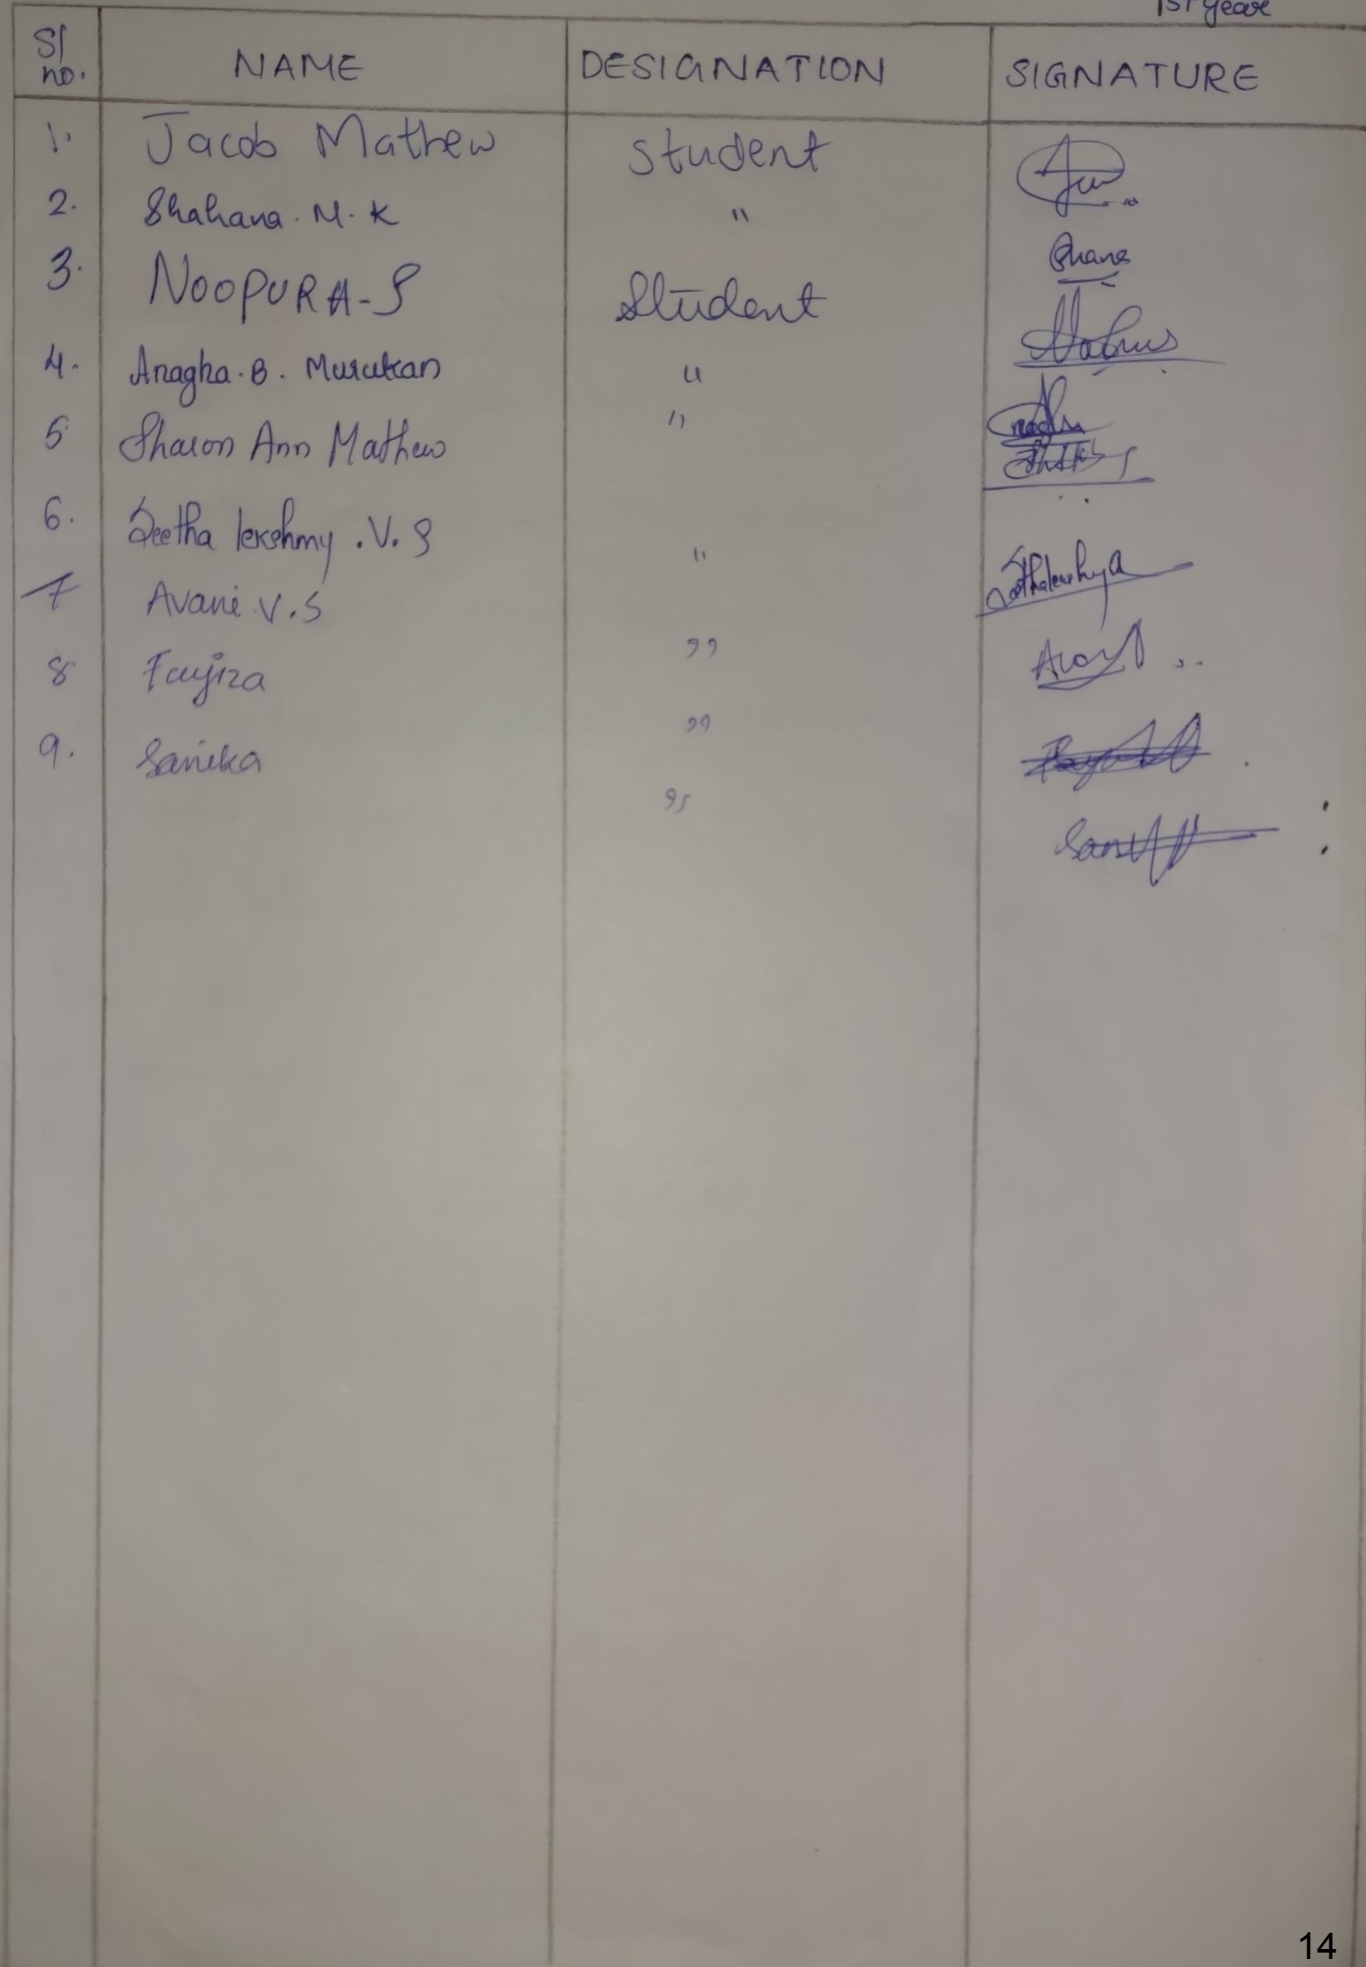 1st year
Sl no. NAME DESIGNATION SIGNATURE
1. Jacob Mathew Student
2. Shahana. M. K "
3. NOOPURA-S Student
4. Anagha. B. Murukan "
5 Sharon Ann Mathew "
6. Seetha lekshmy. V. S "
7 Avani V.S "
8 Fayiza "
9. Sanika "
14